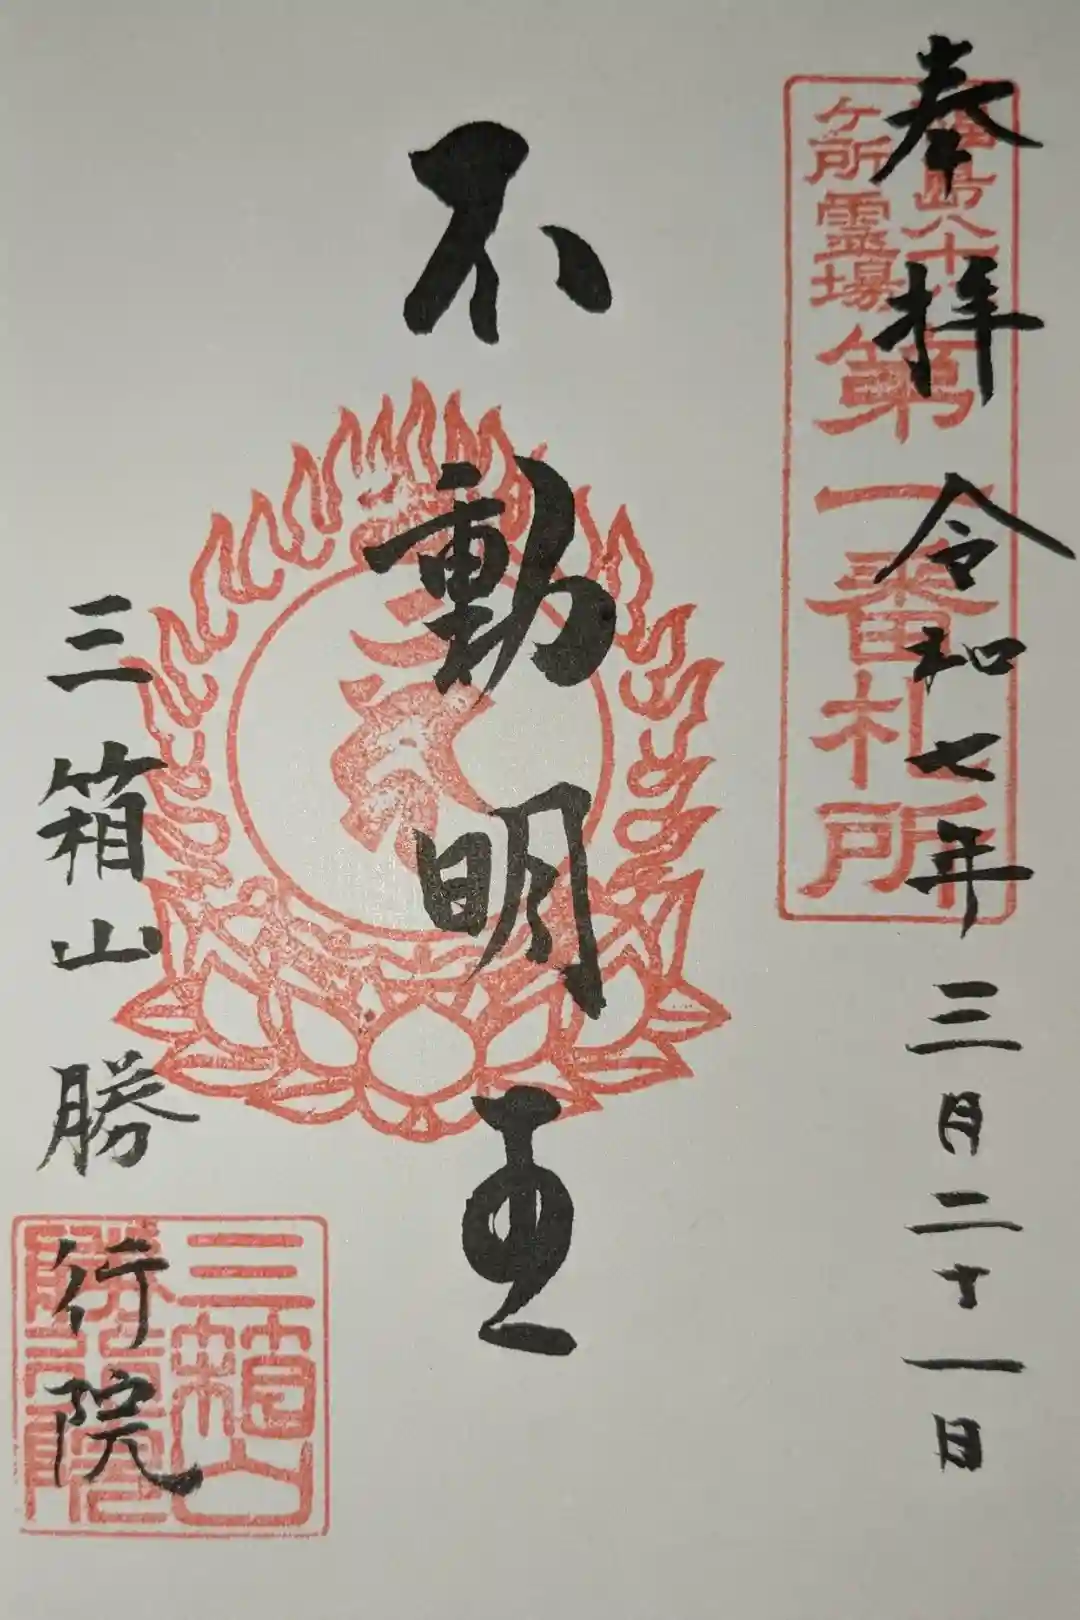 奉拝 令和七年三月二十一日
福島八十八
ヶ所霊場第一番札所
不動明王
三箱山 勝行院
三箱山
勝行院